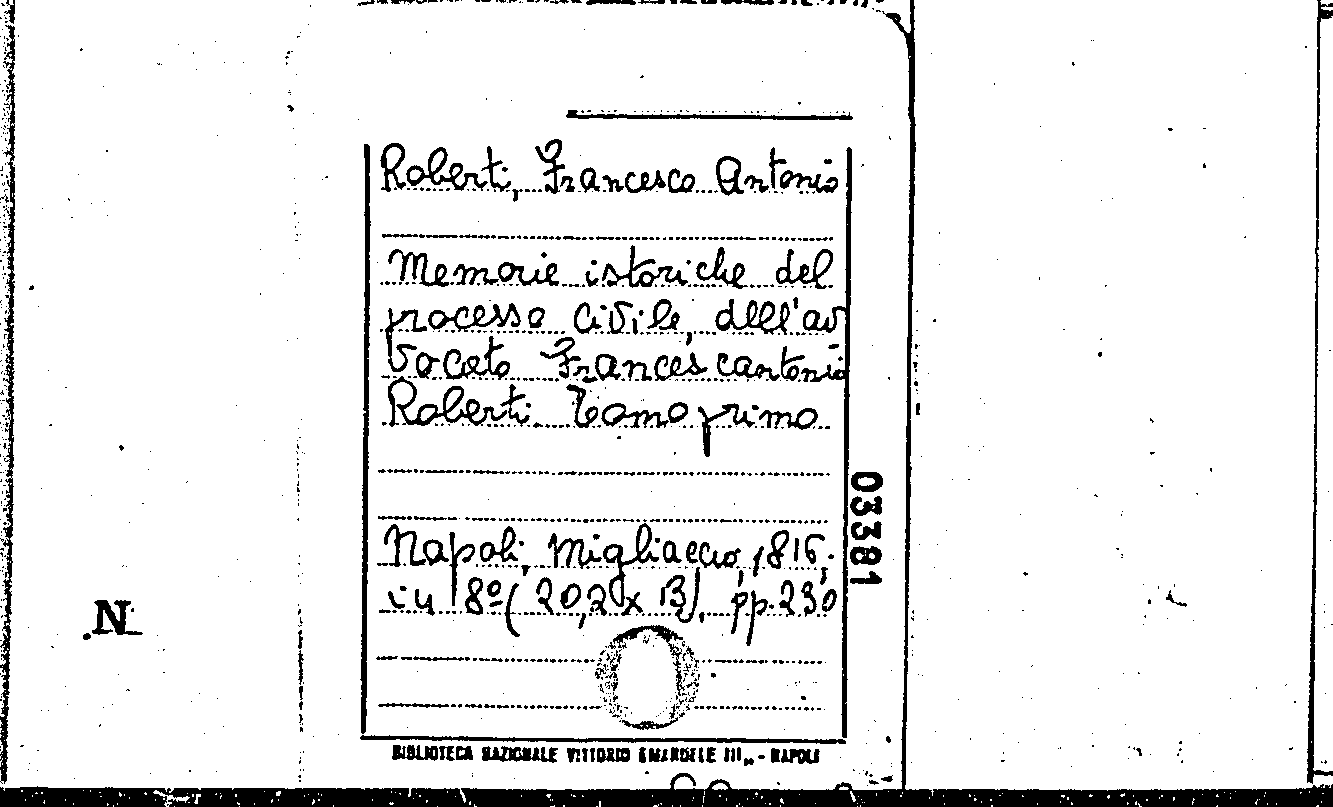 Roberti, Francesco Antonio
Memorie istoriche del
processo civile, dell'av
vocato Francescantonio
Roberti. Tomo primo
Napoli, Migliaccio, 1816,
in 8º (20,2 x 13), pp. 230
03381
N
BIBLIOTECA NAZIONALE VITTORIO EMANUELE III„ - NAPOLI